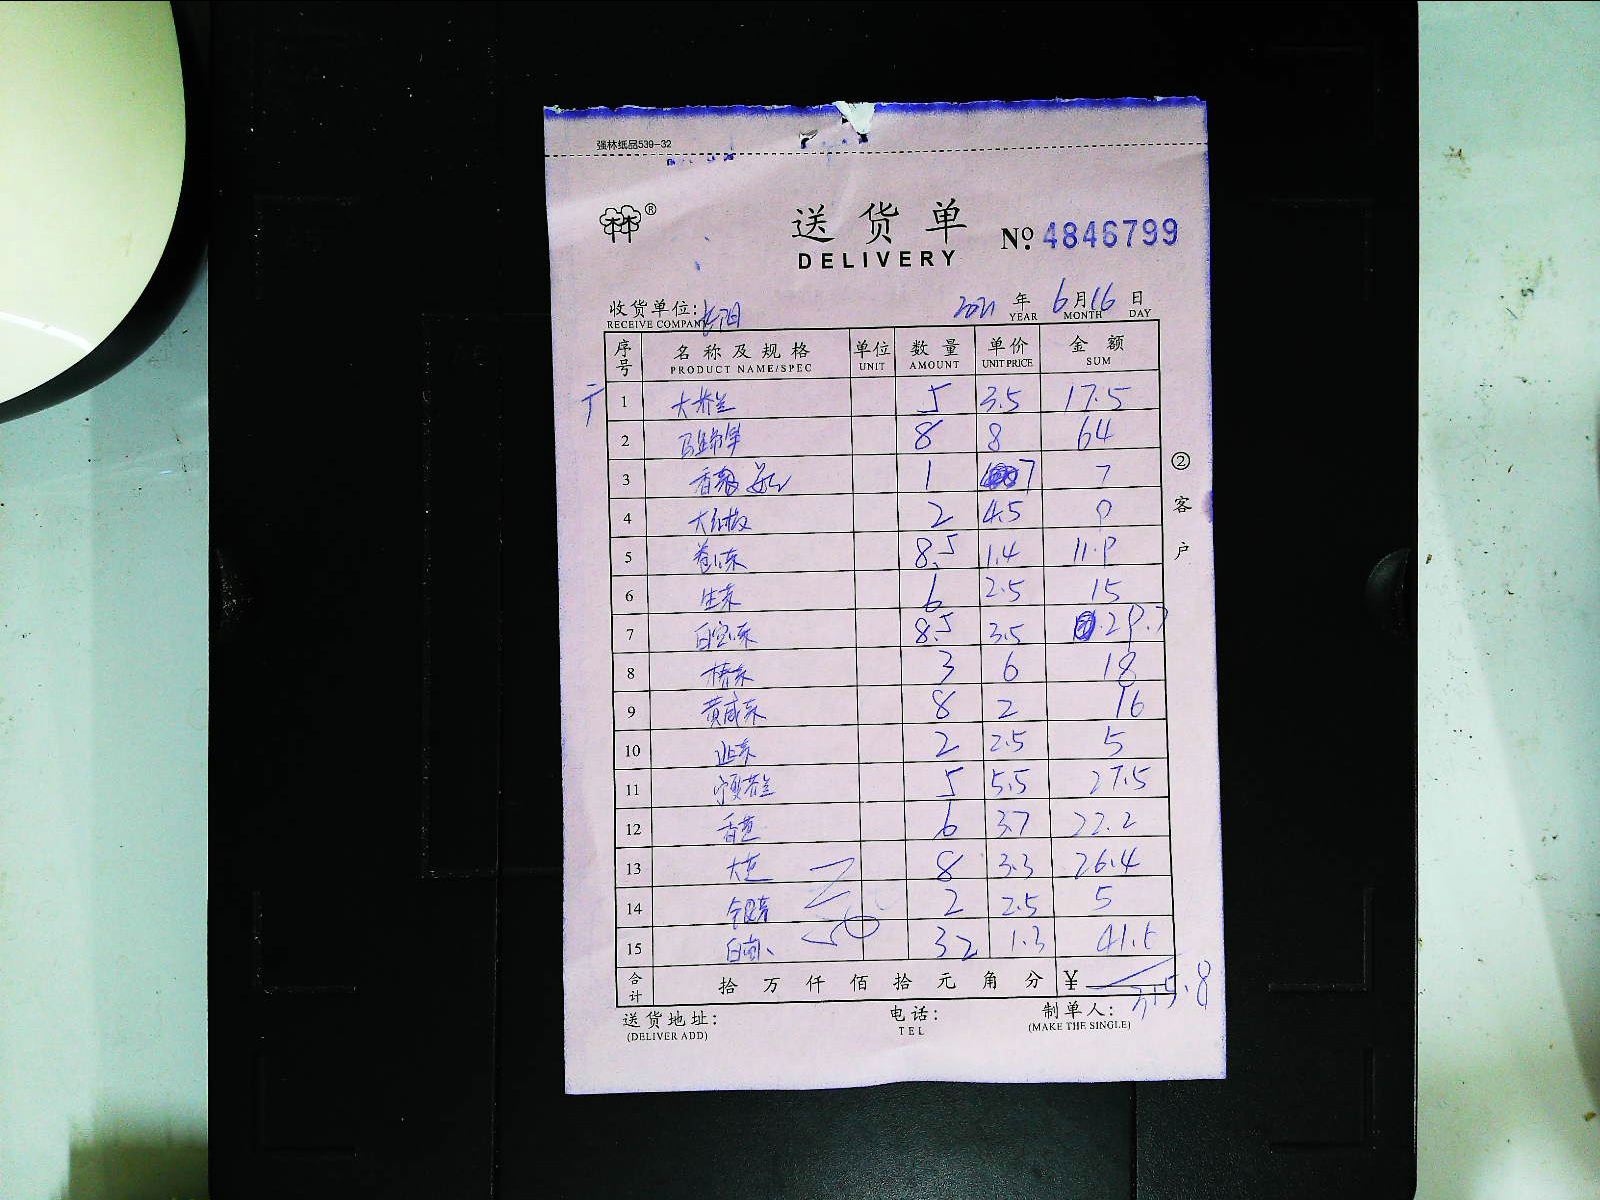 强林纸品539-32
林林®
送货单
DELIVERY
No. 4846799
收货单位:
RECEIVE COMPANY
2021 年 6 月 16 日
YEAR MONTH DAY
序号 名称及规格 单位 数量 单价 金额
PRODUCT NAME/SPEC UNIT AMOUNT UNIT PRICE SUM
1 大芥兰 5 3.5 17.5
2 8 8 64
3 香菜 1 7 7
4 大红椒 2 4.5 9
5 卷心菜 8.5 1.4 11.9
6 生菜 6 2.5 15
7 8.5 3.5 29.7
8 3 6 18
9 黄咸菜 8 2 16
10 韭菜 2 2.5 5
11 宁夏芥兰 5 5.5 27.5
12 香芭 6 3.7 22.2
13 大芭 8 3.3 26.4
14 2 2.5 5
15 32 1.3 41.6
合计 拾 万 仟 佰 拾 元 角 分 ¥ 315.8
送货地址: 电话: 制单人:
(DELIVER ADD) TEL (MAKE THE SINGLE)
②客户